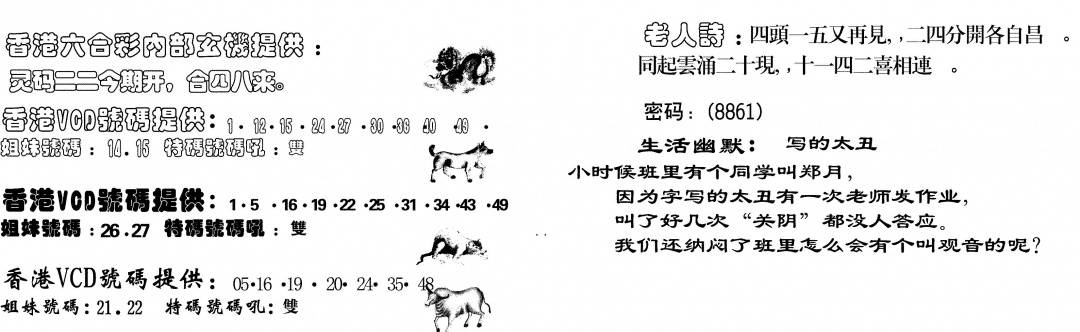 香港六合彩内部玄機提供：
灵码二二今期开，合四八来。
香港VCD號碼提供：1·12·15·24·27·30·38·40·49·
姐妹號碼：14.15 特碼號碼吼：雙
香港VCD號碼提供：1·5·16·19·22·25·31·34·43·49
姐妹號碼：26.27 特碼號碼吼：雙
香港VCD號碼提供：05·16·19·20·24·35·48
姐妹號碼：21.22 特碼號碼吼：雙
老人詩：四頭一五又再見，，二四分開各自昌。
同起雲涌二十現，，十一四二喜相連。
密码：(8861)
生活幽默：写的太丑
小时候班里有个同学叫郑月，
因为字写的太丑有一次老师发作业，
叫了好几次“关阴”都没人答应。
我们还纳闷了班里怎么会有个叫观音的呢？